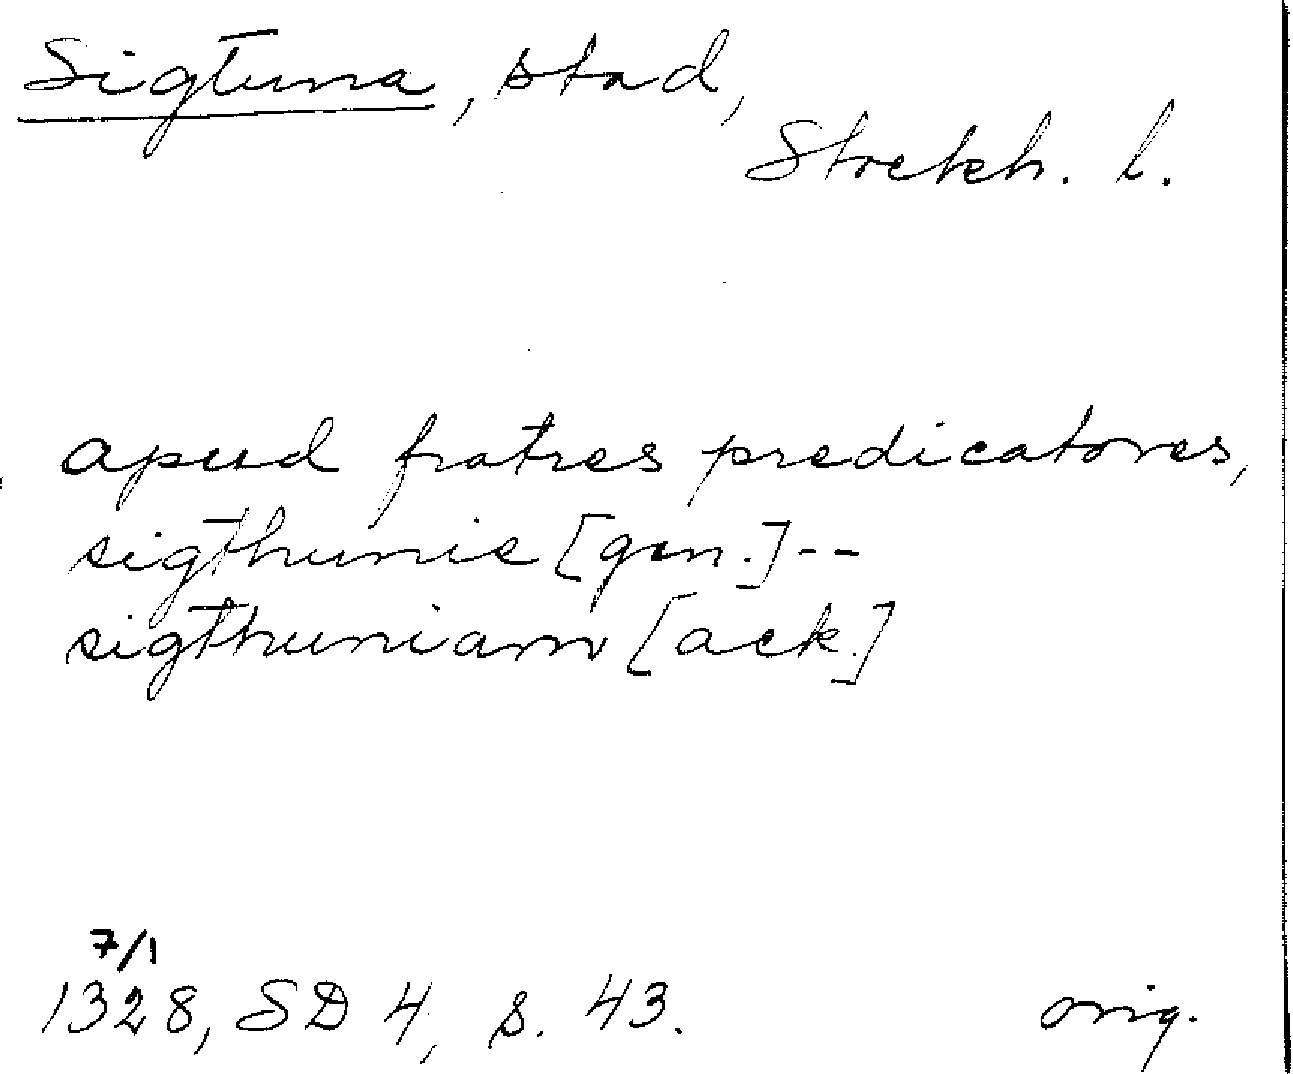 Sigtuna, stad,
Stockh. l.
apud fratres predicatores,
sigthunie [gen.]--
sigthuniam [ack.]
7/1
1328, SD 4, s. 43. orig.